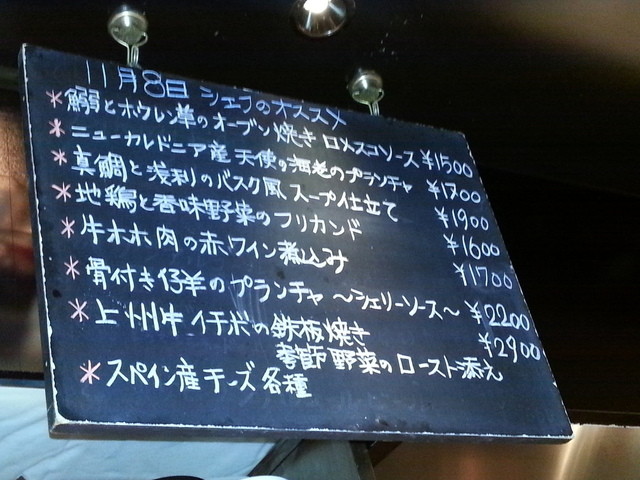 11月8日 シェフのオススメ
*鰯とホウレン草のオーブン焼き ロメスコソース ¥1500
*ニューカルドニア産 天使の海老のプランチャ ¥1200
*真鯛と浅利のバスク風 スープ仕立て ¥1900
*地鶏と香味野菜のフリカンド ¥1600
*牛ホホ肉の赤ワイン煮込み ¥1700
*骨付き仔羊のプランチャ ～シェリーソース～ ¥2200
*上州牛 イチボの鉄板焼き ¥2900
季節野菜のロースト添え
*スペイン産チーズ各種